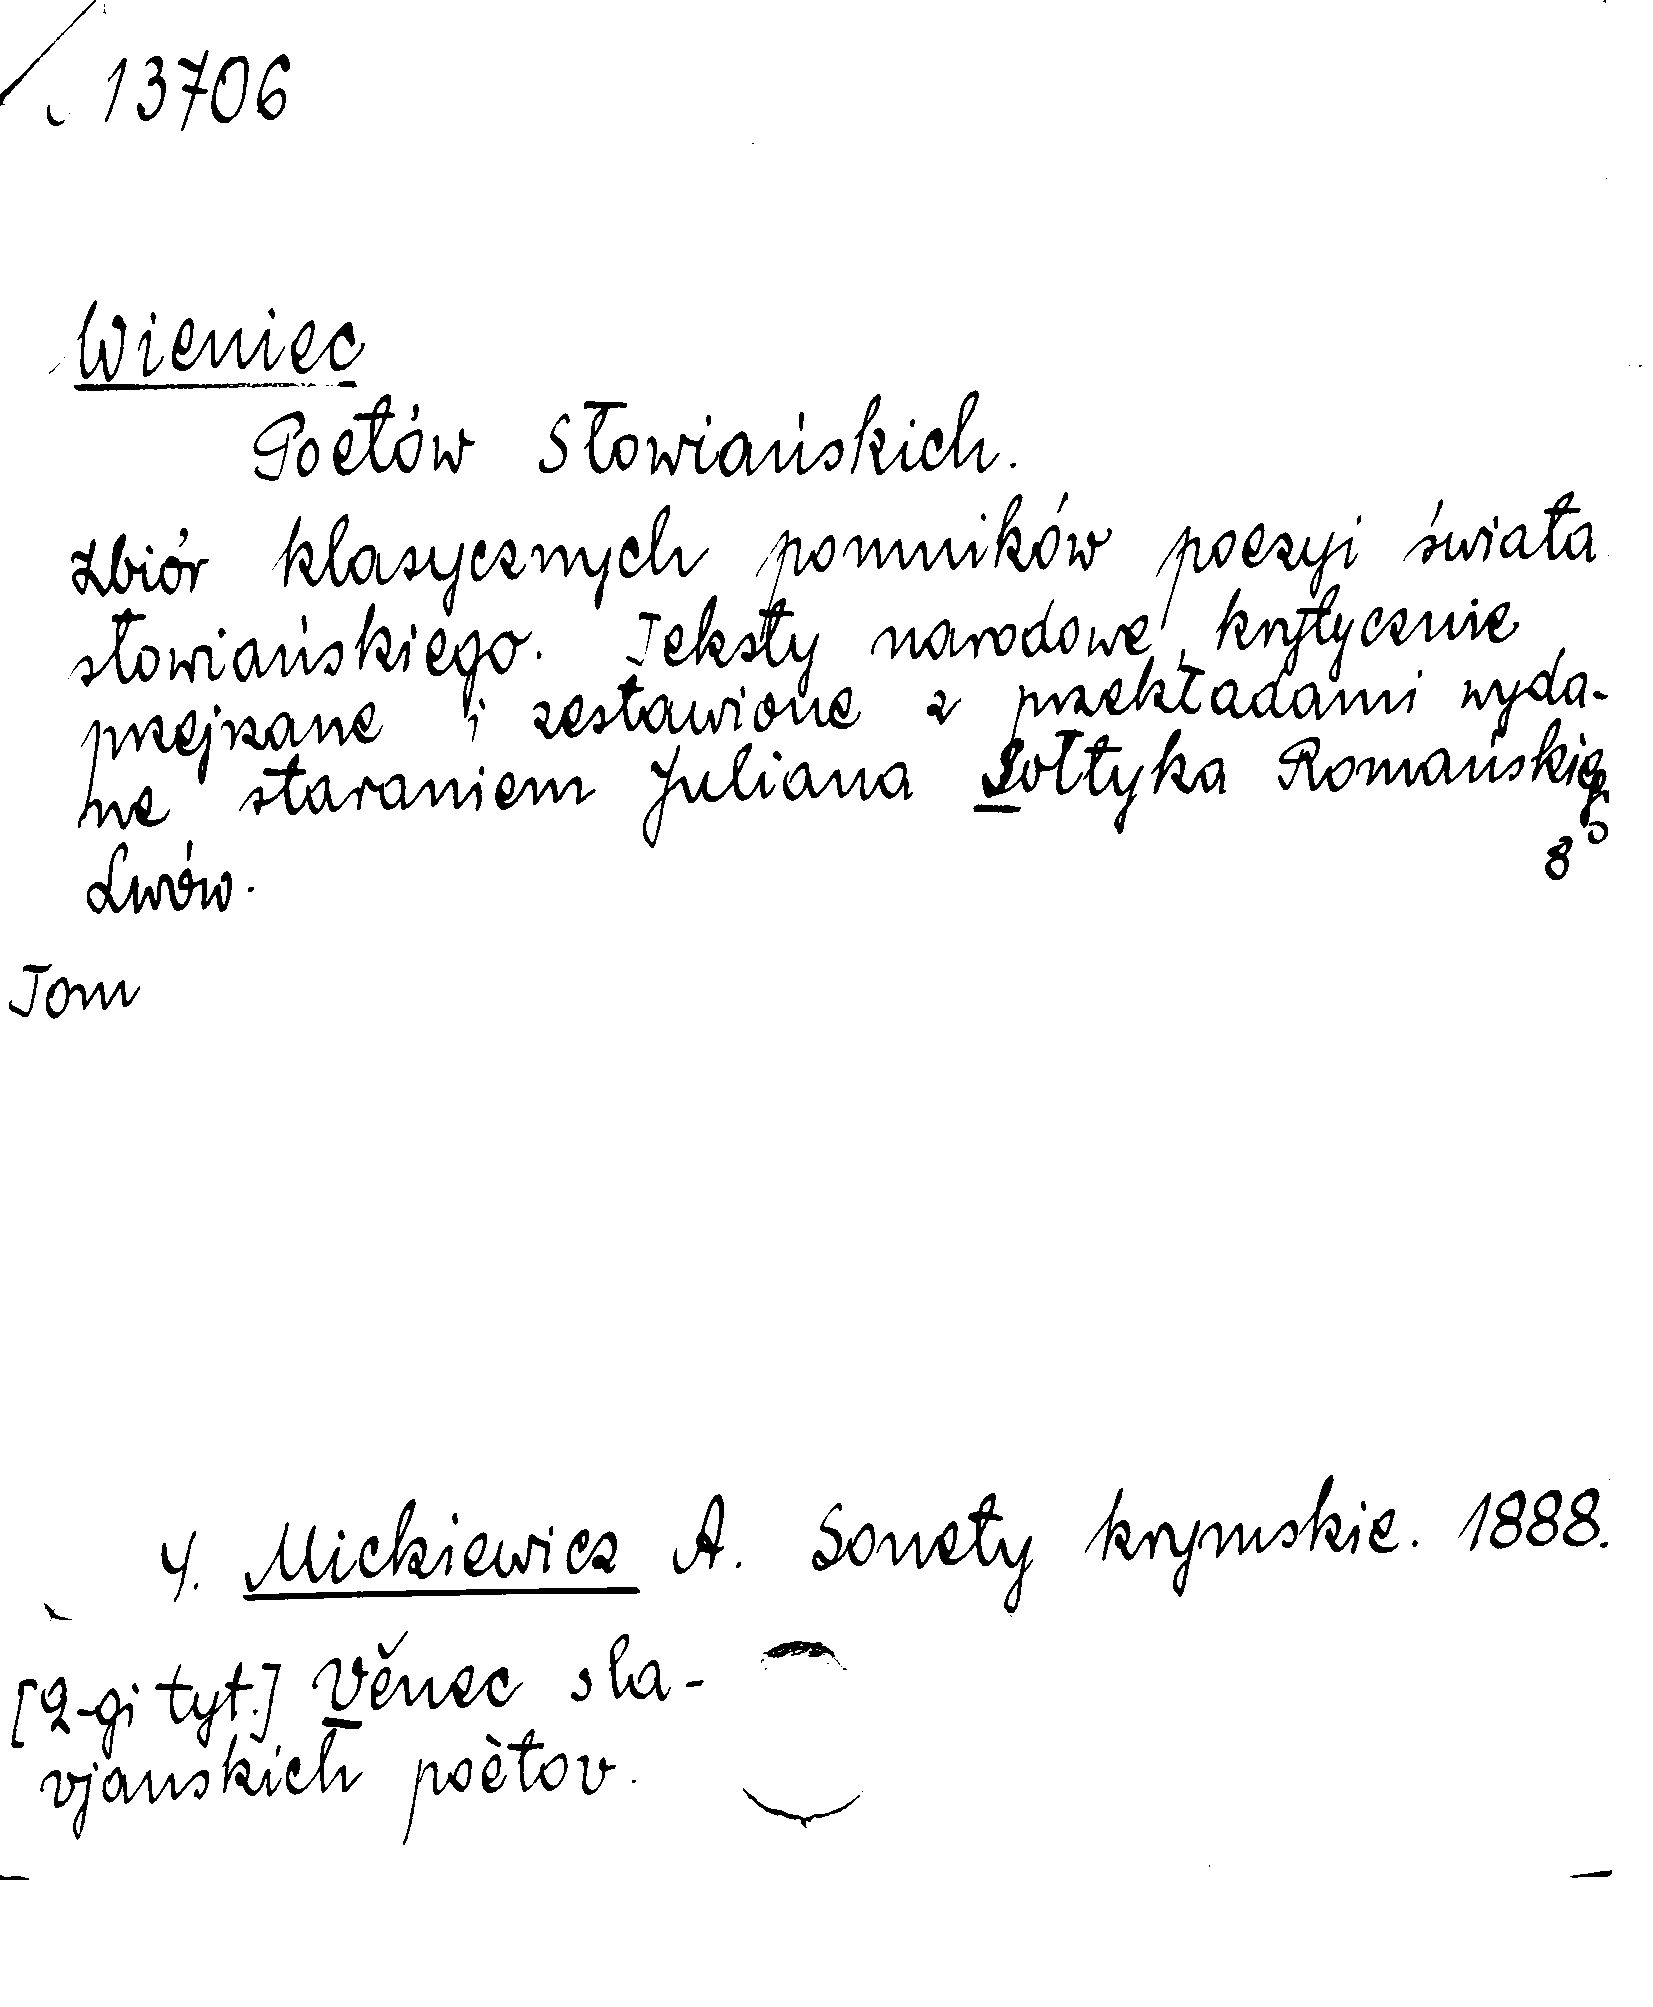 13706
Wieniec
Poetów Słowiańskich.
Zbiór klasycznych pomników poezyi świata
słowiańskiego. Teksty narodowe, krytycznie
przejrzane i zestawione z przekładami wyda-
ne staraniem Juljana Sołtyka Romańskieg.
Lwów. 8°
Tom
4. Mickiewicz A. Sonety krymskie. 1888.
[2-gi tyt.] Věnec sla-
vjanskich poètov.